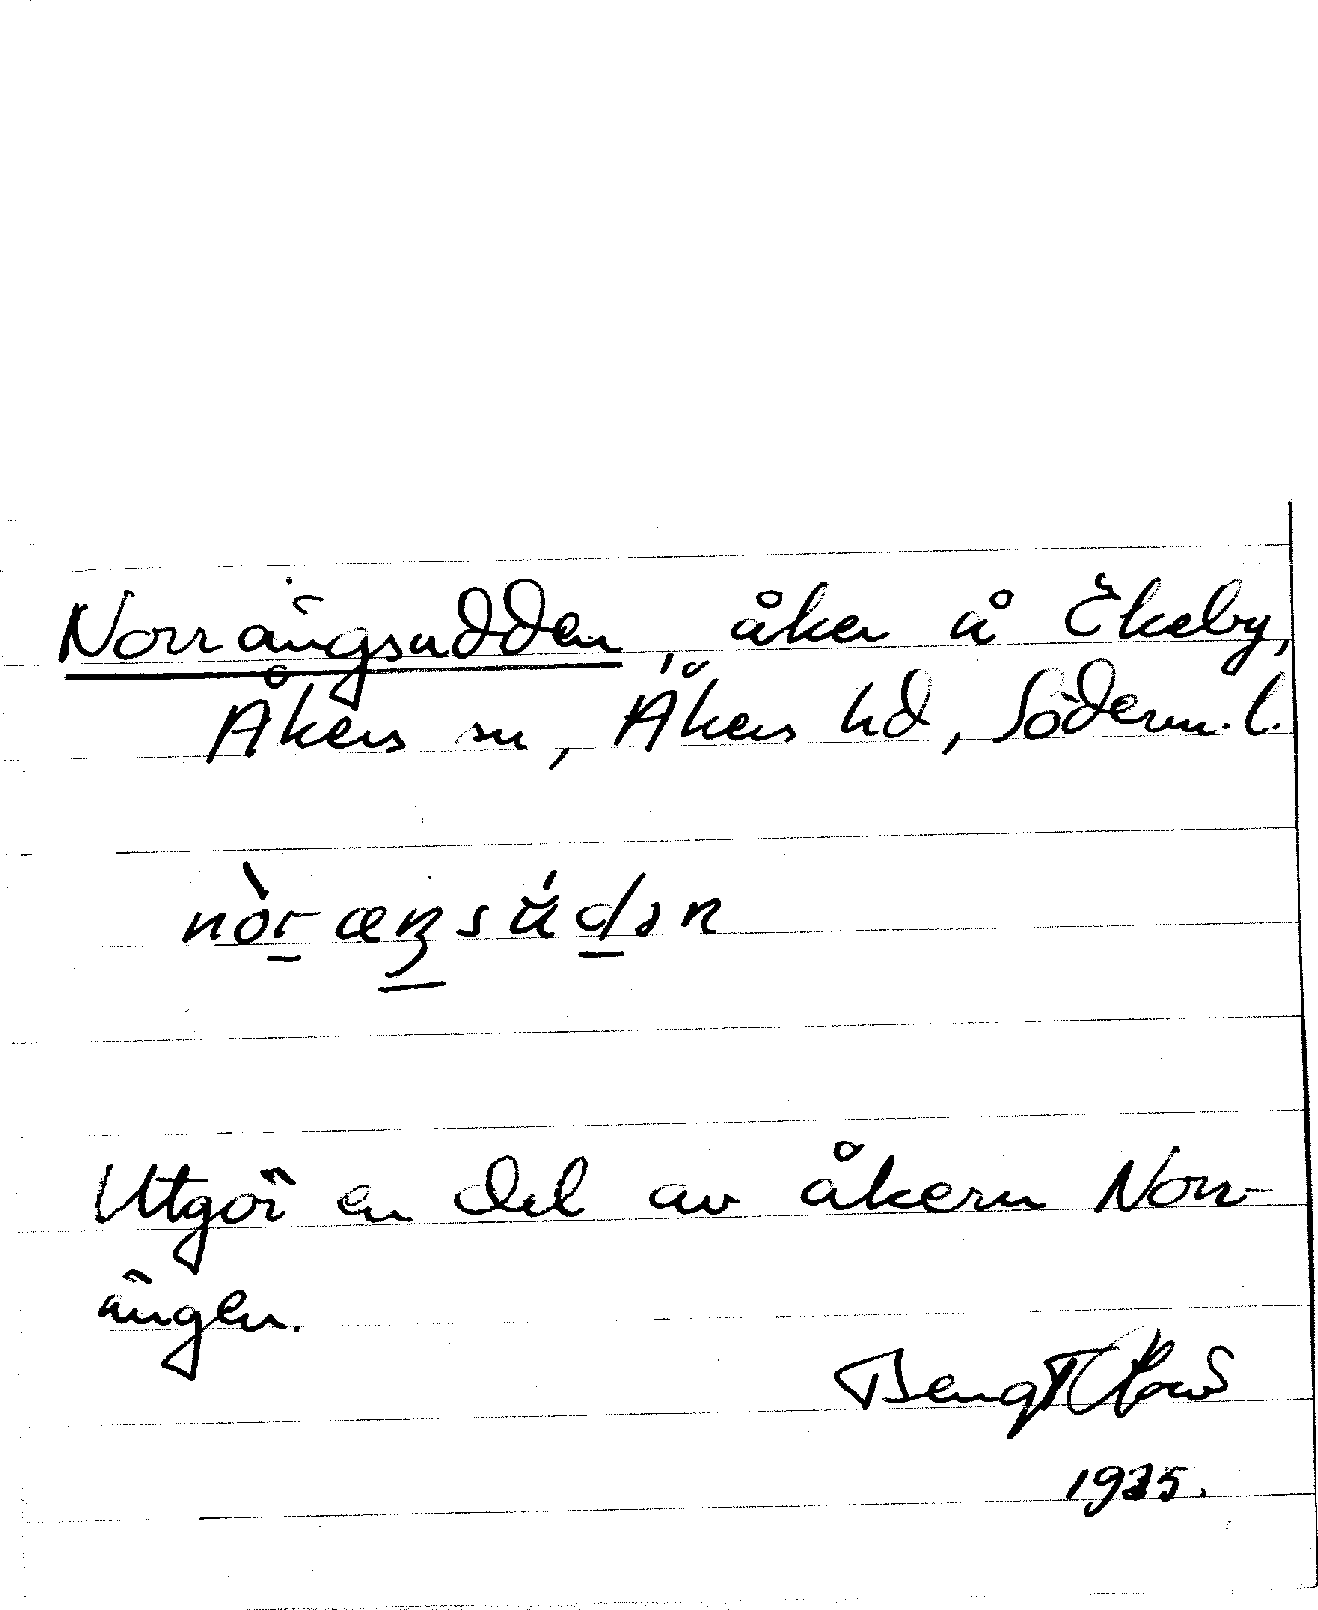 Norrängsudden, åker å Ekeby,
Åkers sn, Åkers hd, Söderm. l.
nòr æŋsúdən
Utgör en del av åkern Norr-
ängen.
Bengt
1935.